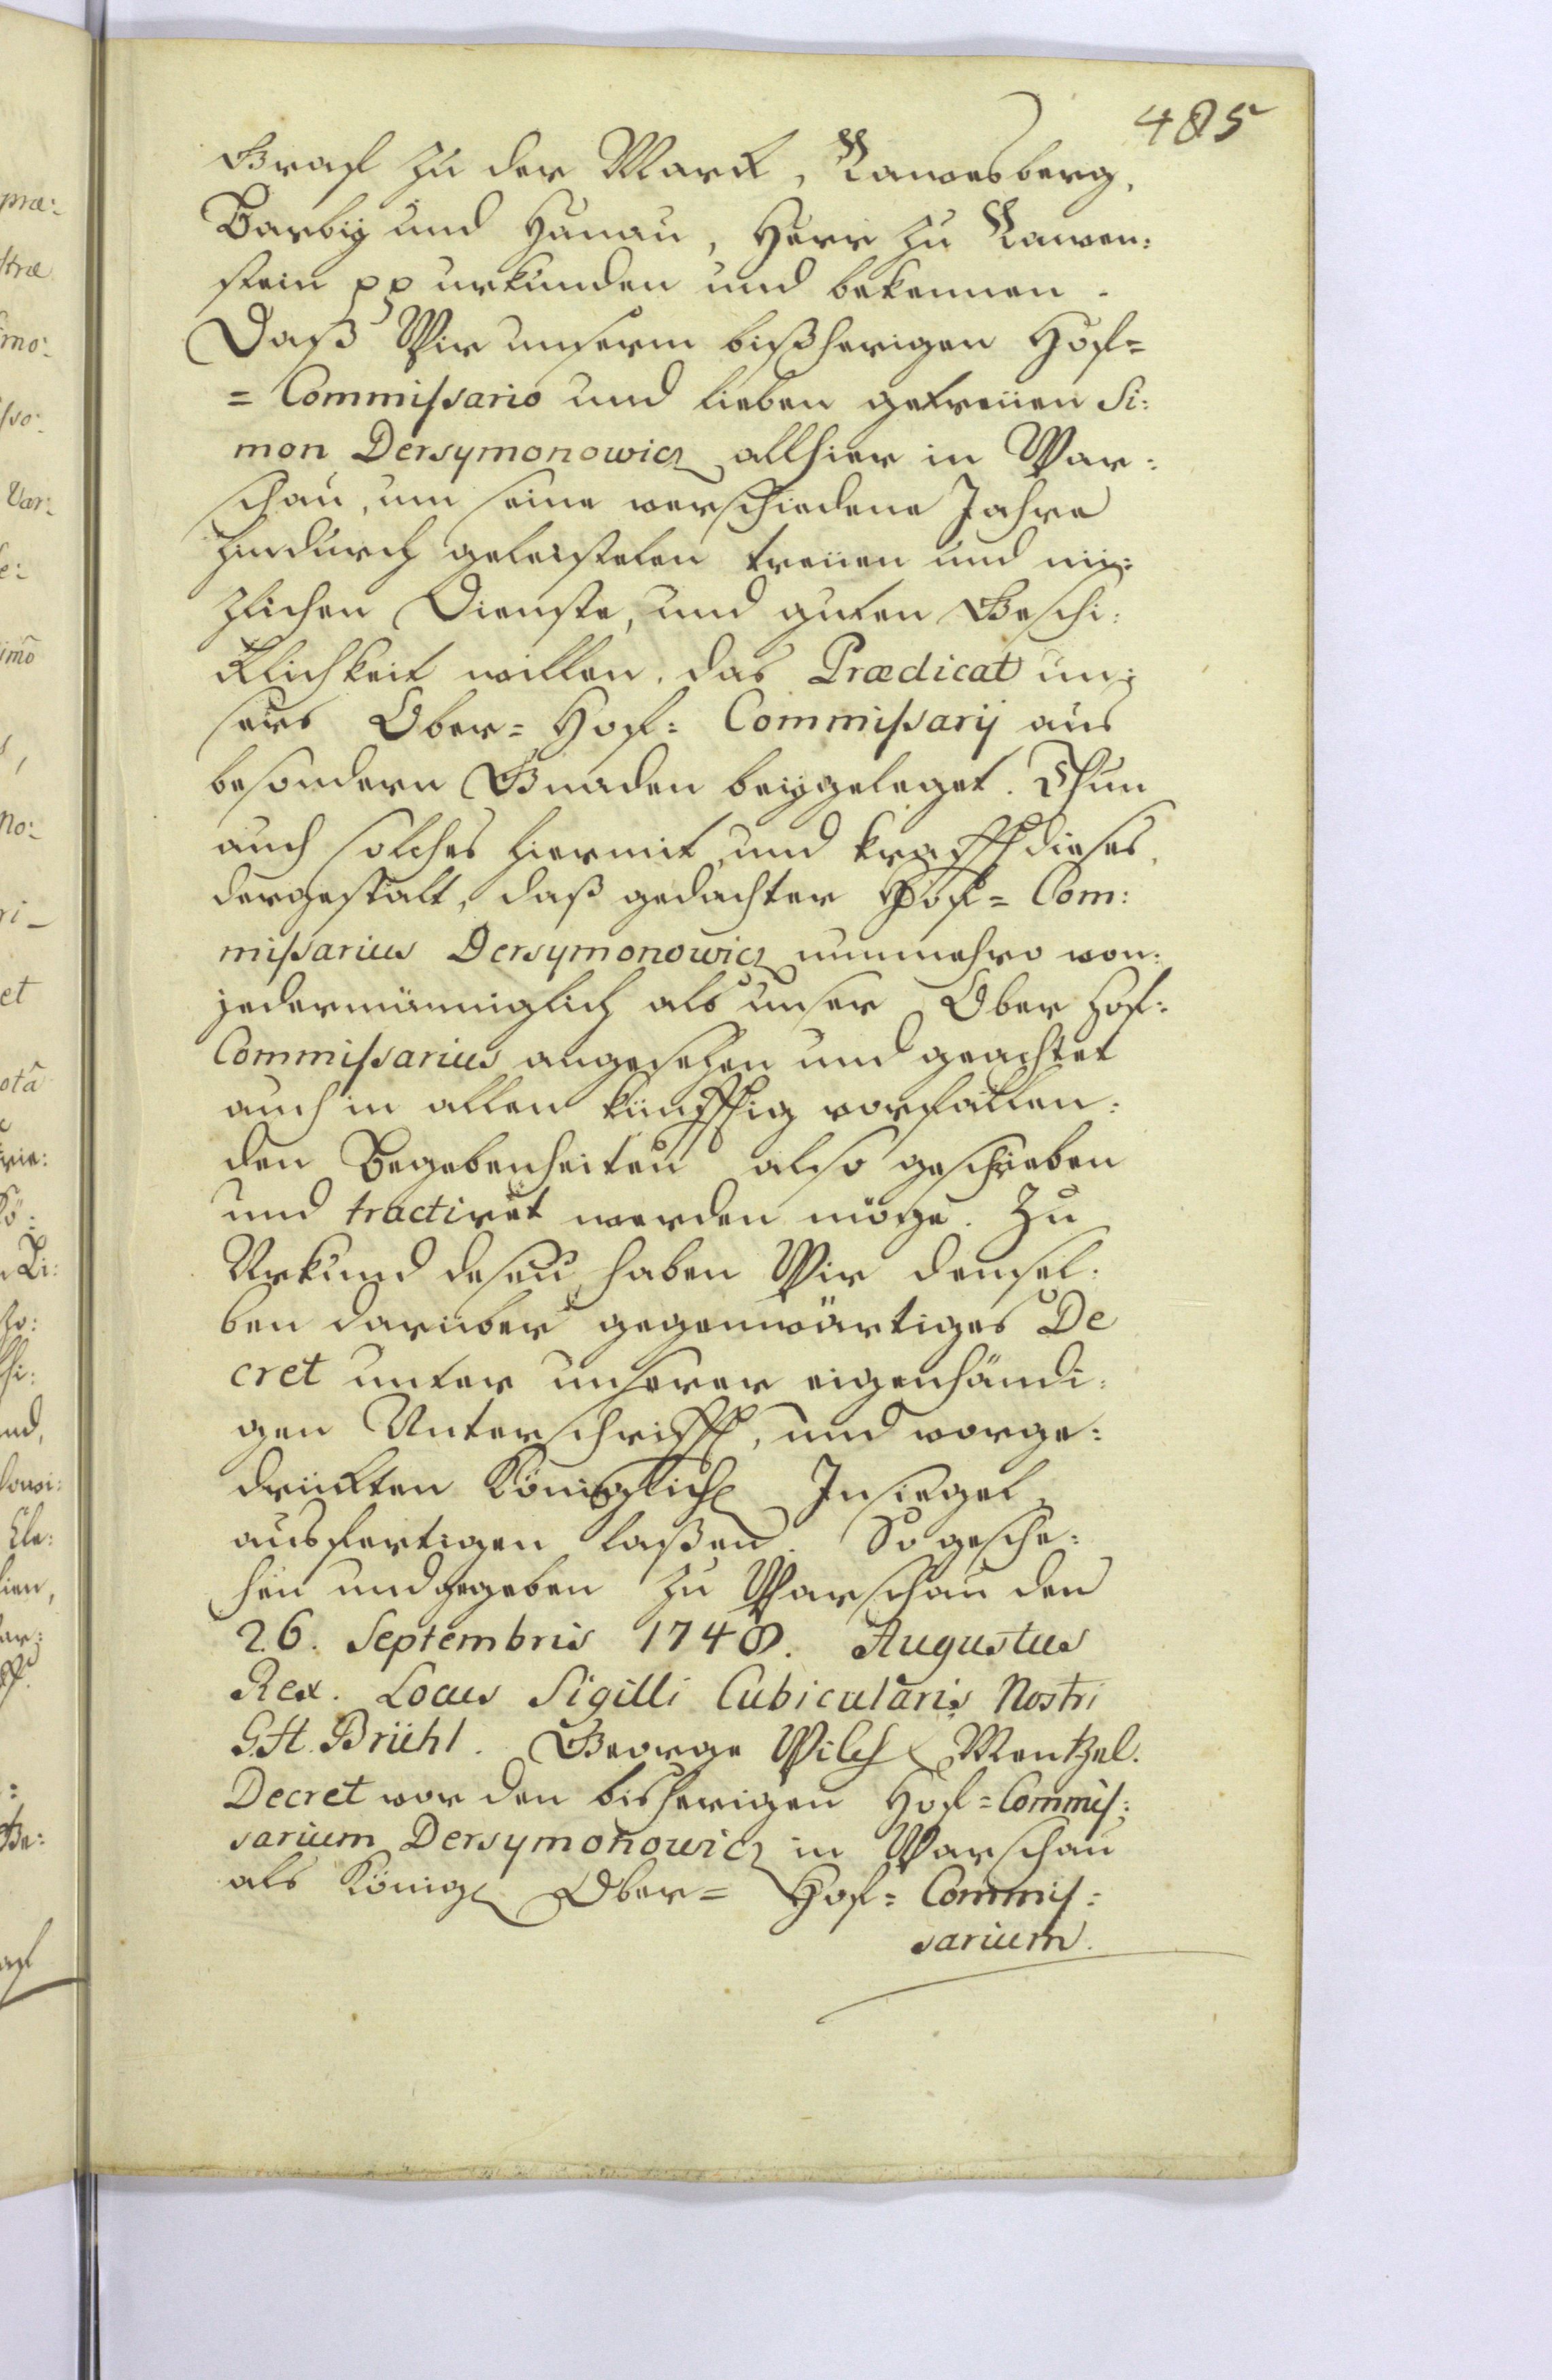 485
Graf zu der Marck, Rawesberg,
Barbij und Hanau, Herr zu Rawen:
stein pp urkunden und bekennen.
Daß Wir unserm bißherigen Hof=
=Commissario und lieben getreüen Si:
mon Dersymonowicz allhier in War:
schau, um seine verschiedene Jahre
hindurch geleisteten treüen und nü:
zlichen Dienste, und guten Geschi:
cklichkeit willen, das Prædicat un:
sers Ober= Hof: Commissarij aus
besondern Gnaden beygeleget. Thun
auch solches hiermit und krafft dieses,
dergestalt, daß gedachter Hof= Com:
missarius Dersymonowicz nunmehro von:
jedermänniglich als unser Ober Hof:
Commissarius angesehen und geachtet
auch in allen künfftig vorfallen:
den Begebenheiten also geschrieben
und tractiret werden möge. Zu
Urkund deßen haben Wir demsel:
ben darüber gegenwärtiges De
cret unter unserer eigenhändi:
gen Unterschrifft, und vorge:
druckten Königlich Insiegel
ausfertigen laßen. So gesche:
hen und gegeben zu Warschau den
26. Septembris 1748. Augustus
Rex. Locus Sigilli Cubicularis Nostri
G.H. Brühl. George Wilh Mentzel.
Decret vor den bisherigen Hof=Commis:
sarium Dersymonowicz in Warschau
als Königl Ober= Hof= Commis:
sarium.